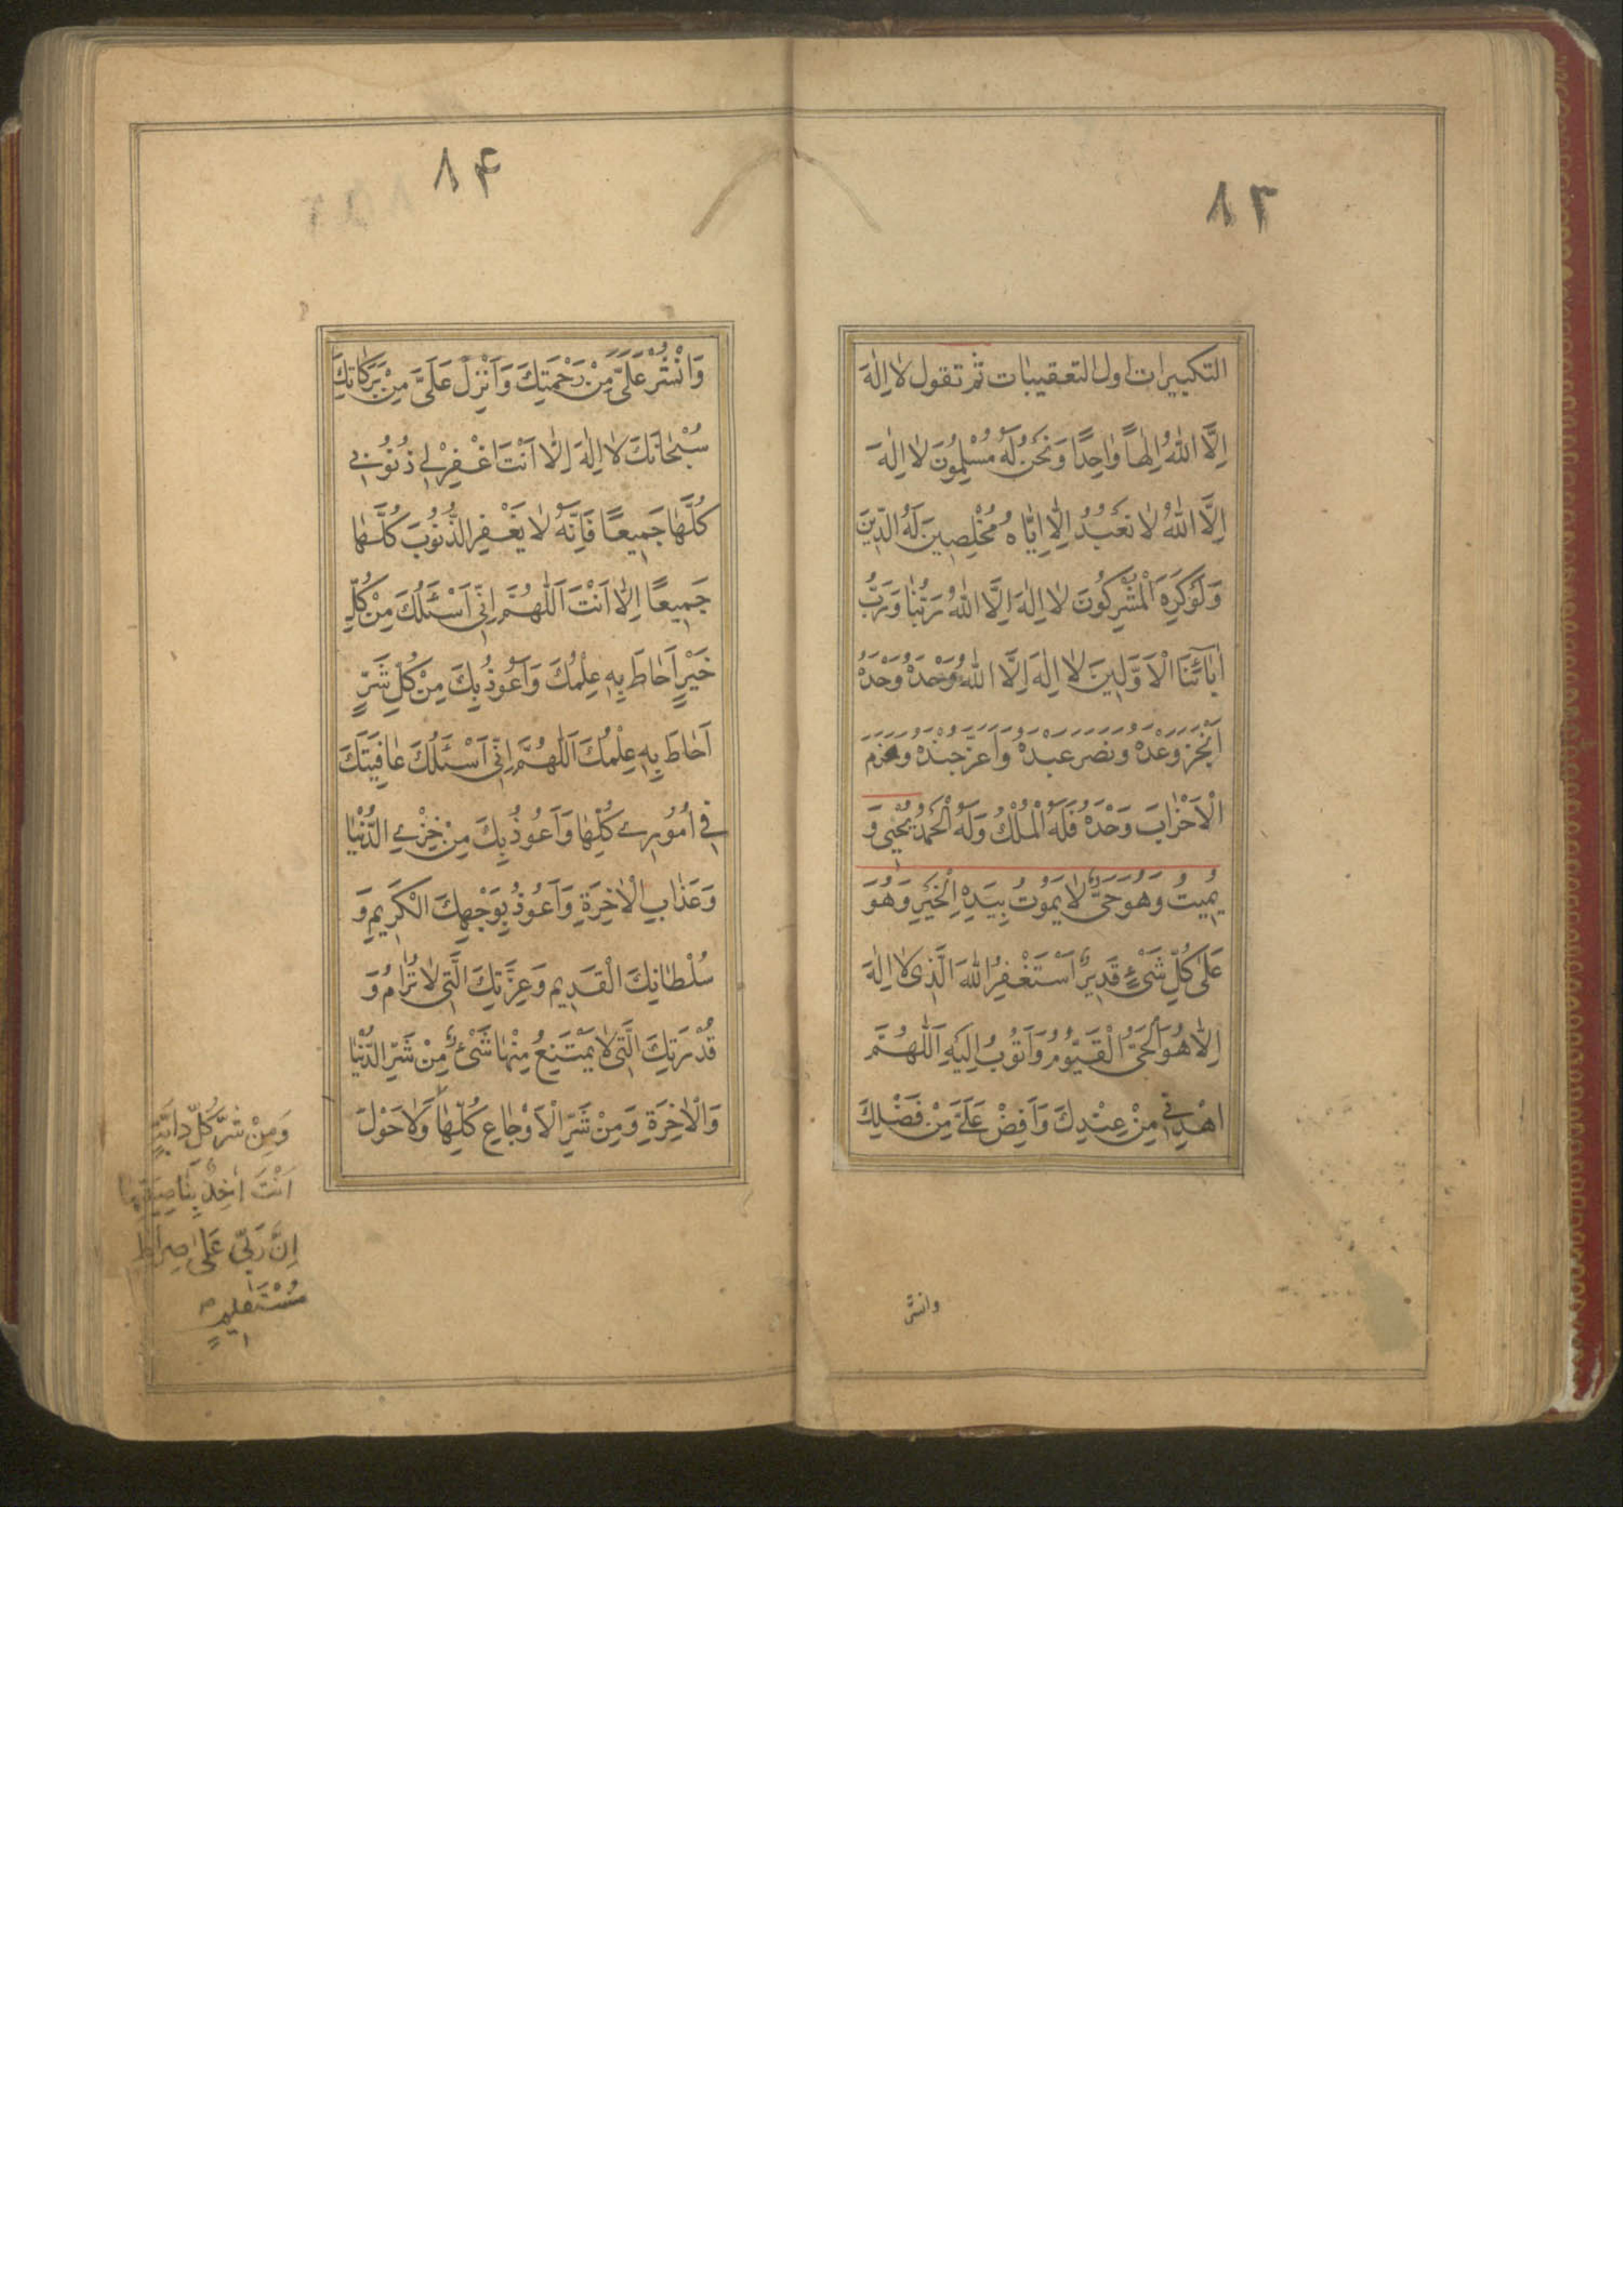 ٨٣
التكبيرات اول التعقيبات ثم تقول لا اِلٰهَ
اِلَّا اللّٰهُ اِلٰهاً وٰاحِدًا وَنَحْنُ لَهُ مُسْلِمُونَ لا اِلٰهَ
اِلَّا اللّٰهُ لا نَعْبُدُ اِلّٰا اِيّٰاهُ مُخْلِصِينَ لَهُ الدّينَ
وَلَوْكَرِهَ الْمُشْرِكُونَ لا اِلٰهَ اِلَّا اللّٰهُ رَبُّنٰا وَرَبُّ
اٰبٰائِنَا الْاَوَّلِينَ لا اِلٰهَ اِلَّا اللّٰهُ وَحْدَهُ وَحْدَهُ
اَنْجَزَ وَعْدَهُ وَنَصَرَ عَبْدَهُ وَاَعَزَّ جُنْدَهُ وَهَزَمَ
الْاَحْزٰابَ وَحْدَهُ فَلَهُ الْمُلْكُ وَلَهُ الْحَمْدُ يُحْيِي وَ
يُمِيتُ وَهُوَ حَيٌّ لا يَمُوتُ بِيَدِهِ الْخَيْرِ وَهُوَ
عَلىٰ كُلِّ شَيْءٍ قَدِيرٌ اَسْتَغْفِرُ اللّٰهَ الَّذِى لا اِلٰهَ
اِلّٰا هُوَ الْحَىُّ الْقَيُّومُ وَاَتُوبُ اِلَيْهِ اَللّٰهُمَّ
اهْدِنِى مِنْ عِنْدِكَ وَاَفِضْ عَلَىَّ مِنْ فَضْلِكَ
وانشر
٨۴
وَانْشُرْ عَلَىَّ مِنْ رَحْمَتِكَ وَاَنْزِلْ عَلَىَّ مِنْ بَرَكٰاتِكَ
سُبْحٰانَكَ لا اِلٰهَ اِلّٰا اَنْتَ اغْفِرْلِى ذُنُوبِى
كُلَّهٰا جَمِيعًا فَاِنَّهُ لا يَغْفِرُ الذُّنُوبَ كُلَّهٰا
جَمِيعًا اِلّٰا اَنْتَ اَللّٰهُمَّ اِنّى اَسْئَلُكَ مِنْ كُلِّ
خَيْرٍ اَحٰاطَ بِهِ عِلْمُكَ وَاَعُوذُ بِكَ مِنْ كُلِّ شَرٍّ
اَحٰاطَ بِهِ عِلْمُكَ اَللّٰهُمَّ اِنّى اَسْئَلُكَ عٰافِيَتَكَ
فِى اُمُورِى كُلِّهٰا وَاَعُوذُ بِكَ مِنْ خِزْىِ الدُّنْيٰا
وَعَذٰابِ الْاٰخِرَةِ وَاَعُوذُ بِوَجْهِكَ الْكَرِيمِ وَ
سُلْطٰانِكَ الْقَدِيمِ وَعِزَّتِكَ الَّتِى لا تُرٰامُ وَ
قُدْرَتِكَ الَّتِى لا يَمْتَنِعُ مِنْهٰا شَىْءٌ مِنْ شَرِّ الدُّنْيٰا
وَالْاٰخِرَةِ وَمِنْ شَرِّ الْاَوْجٰاعِ كُلِّهٰا وَلا حَوْلَ
وَمِنْ شَرِّ كُلِّ دٰابَّةٍ
اَنْتَ اٰخِذٌ بِنٰاصِيَتِهٰا
اِنَّ رَبِّى عَلىٰ صِرٰاطٍ
مُسْتَقِيمٍ